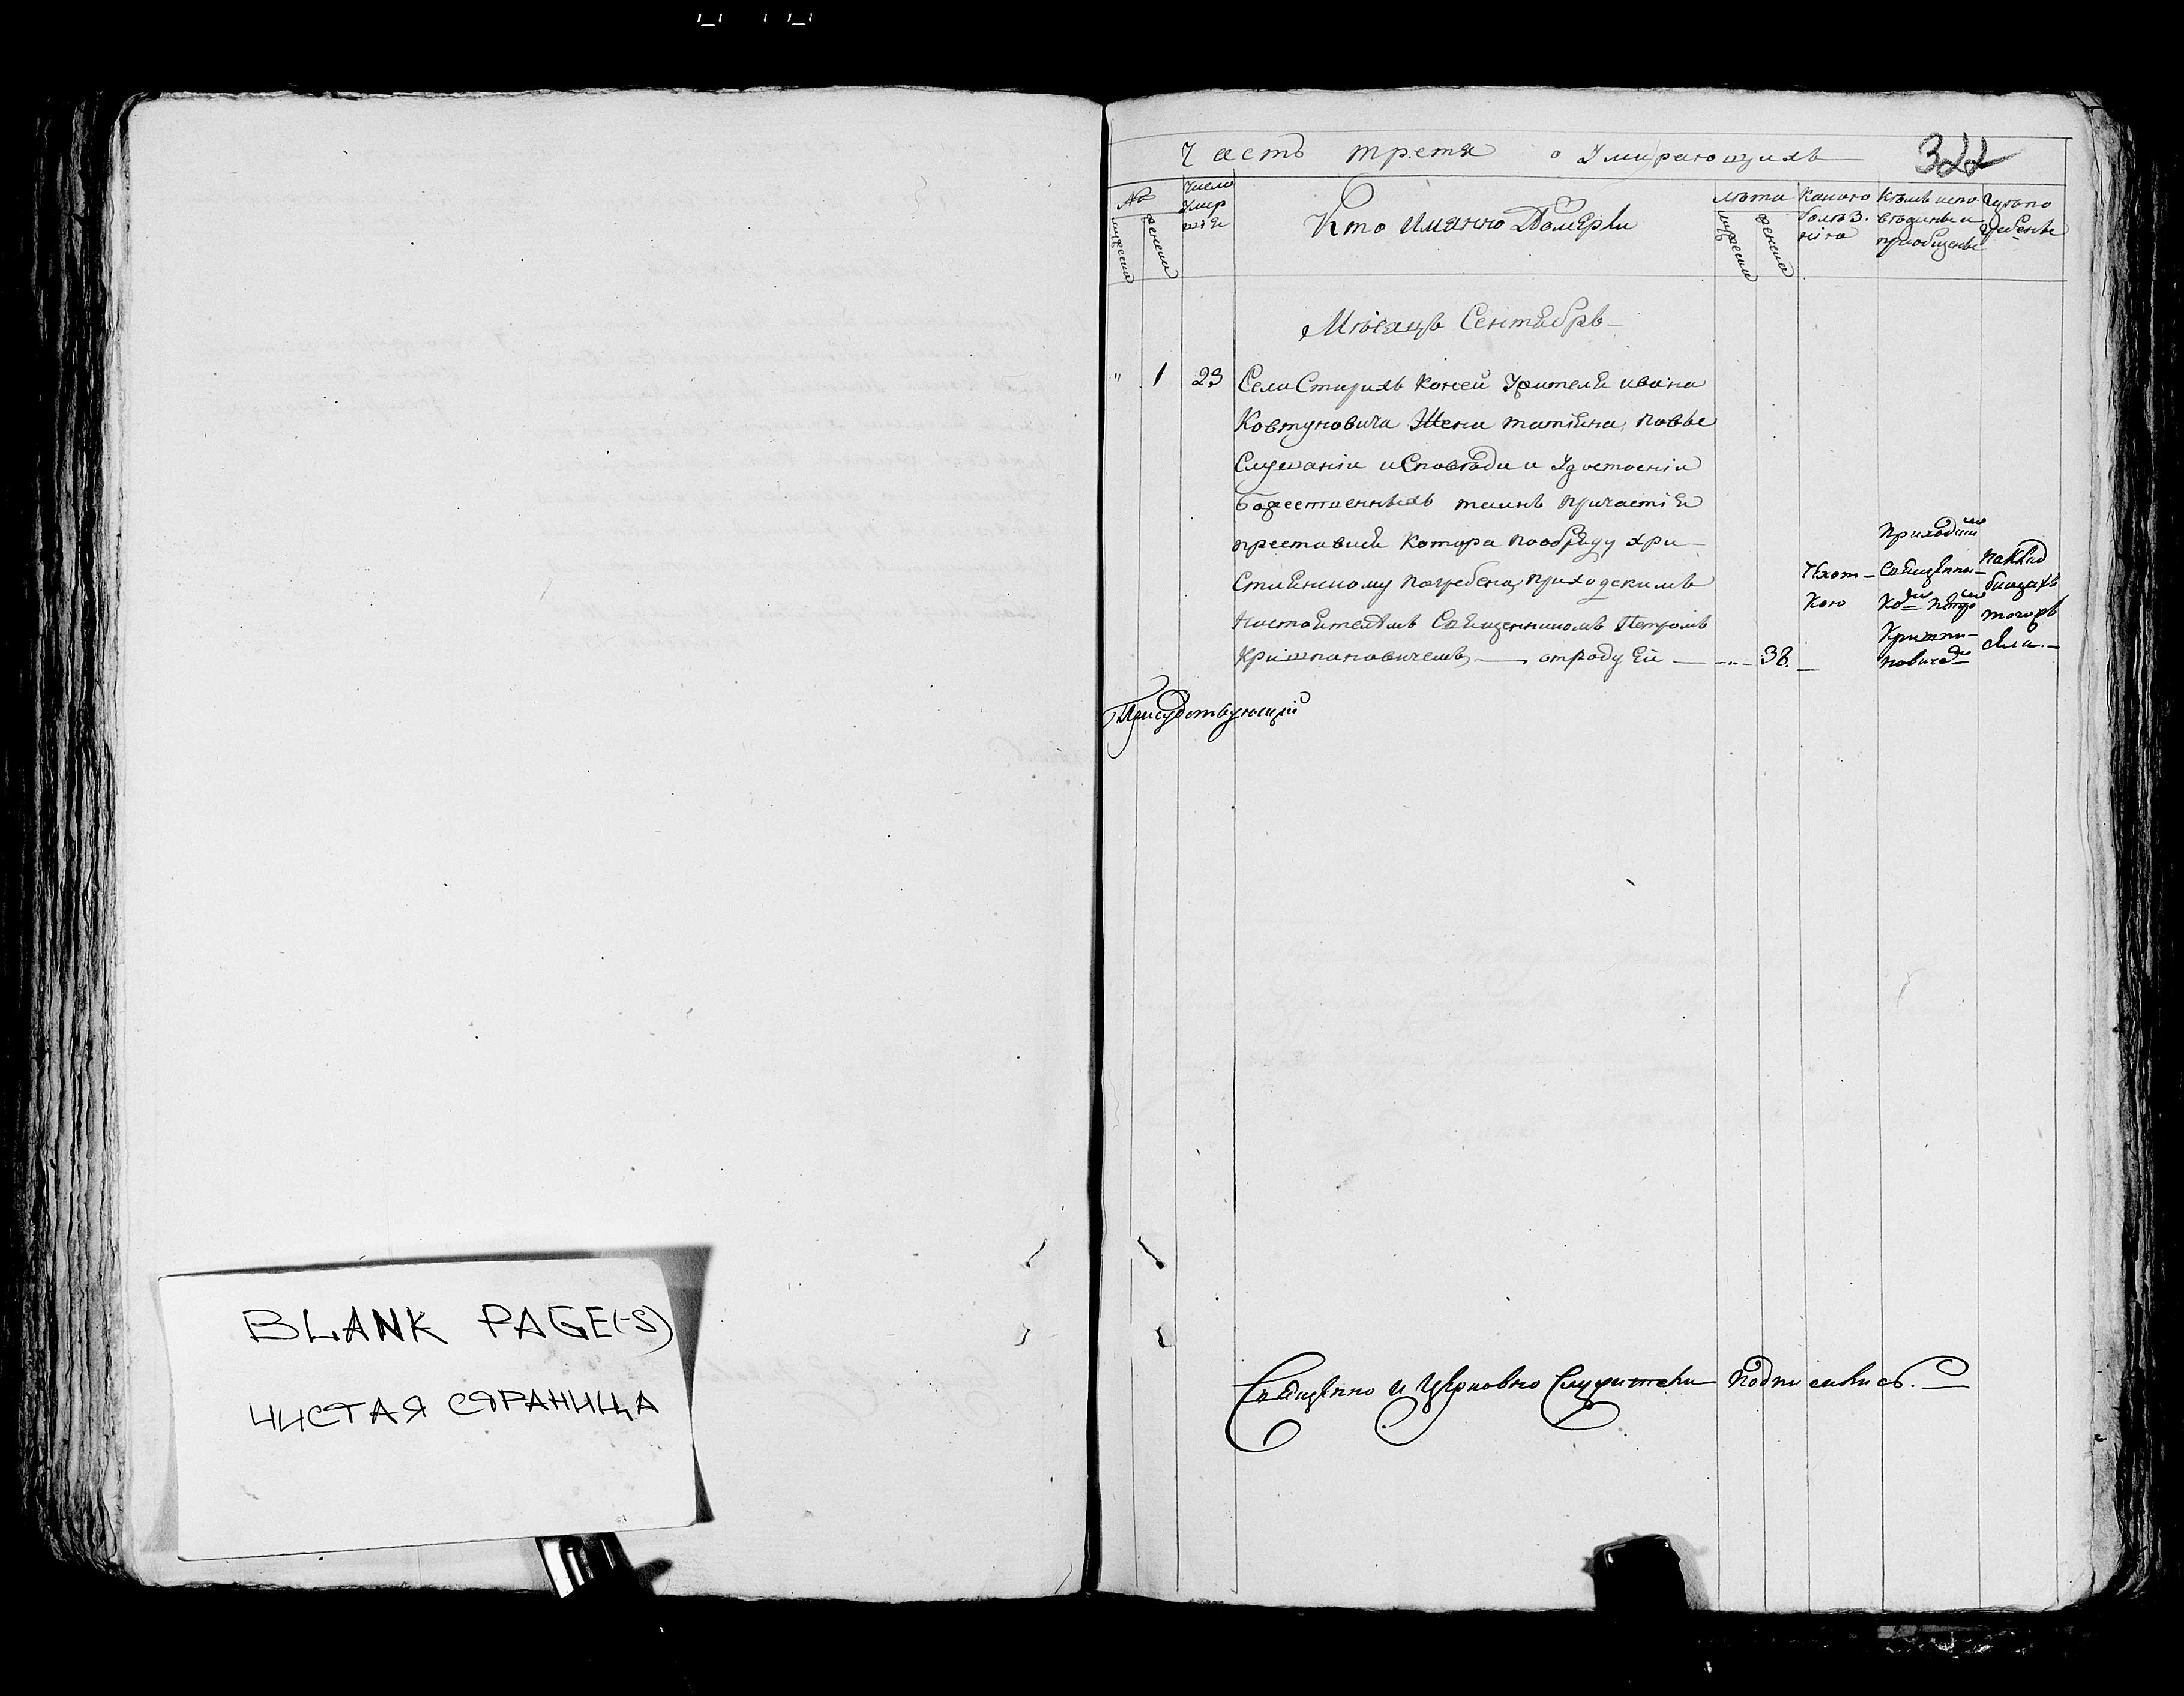 BLANK PAGE(-S)
ЧИСТАЯ СТРАНИЦА
Часть третя о Умирающихъ
322
№
мужеска
женска
Число
Умир
шія
Кто Имянно Померли
лѣта
мужеска
женска
Какою
болѣз.
нію
Кѣмъ испо
вѣданы и
приобщены
Гдѣ по
гребены
Мѣсяцъ Сентябрь
" 1 23 Села Старыхъ Коней Жителя ивана
Ковтуновича Жена татіяна, по
Слушаніи исповѣди и Удостоеніи
божественныхъ таинъ причастія
преставися Котора пообряду хри-
стіянскому погребена приходскимъ
Настоятелемъ Священникомъ Петромъ
Криштановичемъ, отроду Ей 38.
Чхот-
кою
Приходскимъ
Священни-
комъ Петромъ
Кришта-
новичемъ
на Клад
бищахъ
тогожъ
села.
Присудствующій
Священно и Церковно Служители подписались.